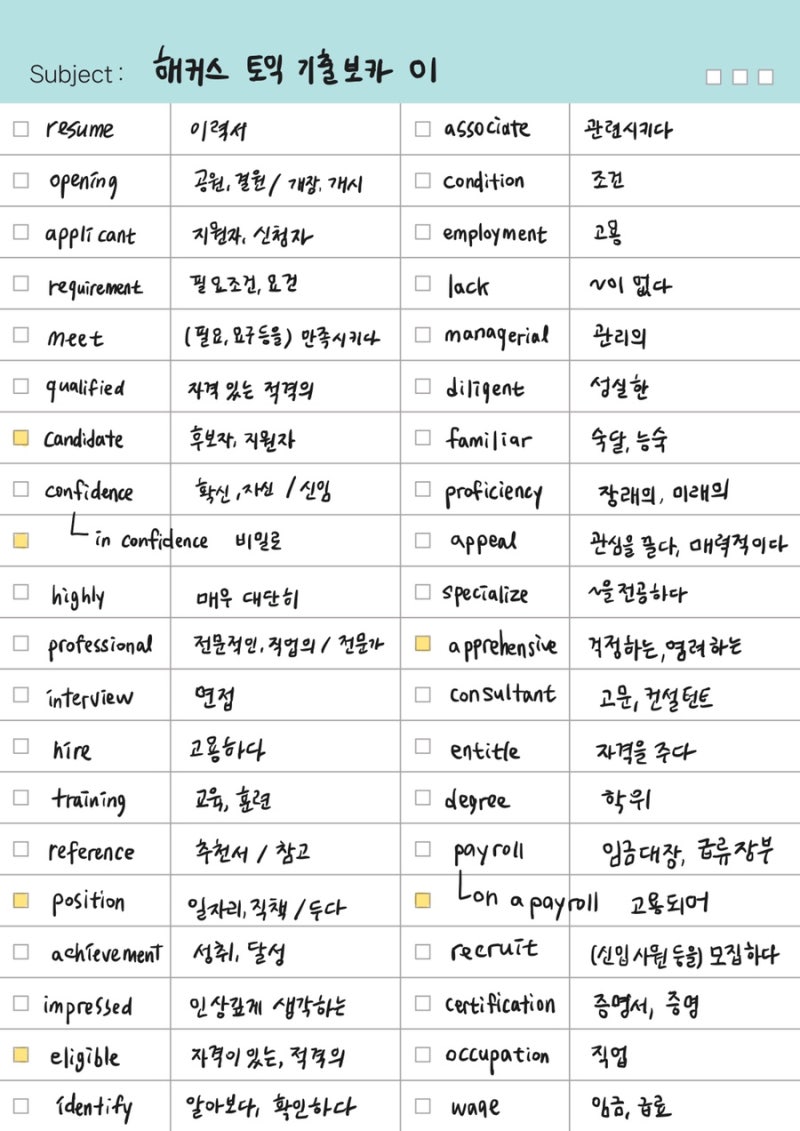 Subject : 해커스 토익 기출보카 01
resume 이력서
opening 공원, 결원 / 개장, 개시
applicant 지원자, 신청자
requirement 필요조건, 요건
meet (필요, 요구 등을) 만족시키다
qualified 자격 있는 적격의
candidate 후보자, 지원자
confidence 확신, 자신 / 신임
in confidence 비밀로
highly 매우 대단히
professional 전문적인, 직업의 / 전문가
interview 면접
hire 고용하다
training 교육, 훈련
reference 추천서 / 참고
position 일자리, 직책 / 두다
achievement 성취, 달성
impressed 인상깊게 생각하는
eligible 자격이 있는, 적격의
identify 알아보다, 확인하다
associate 관련시키다
condition 조건
employment 고용
lack ~이 없다
managerial 관리의
diligent 성실한
familiar 숙달, 능숙
proficiency 장래의, 미래의
appeal 관심을 끌다, 매력적이다
specialize ~을 전공하다
apprehensive 걱정하는, 염려하는
consultant 고문, 컨설턴트
entitle 자격을 주다
degree 학위
payroll 임금대장, 급류장부
on a payroll 고용되머
recruit (신입 사원 등을) 모집하다
certification 증명서, 증명
occupation 직업
wage 임금, 급료